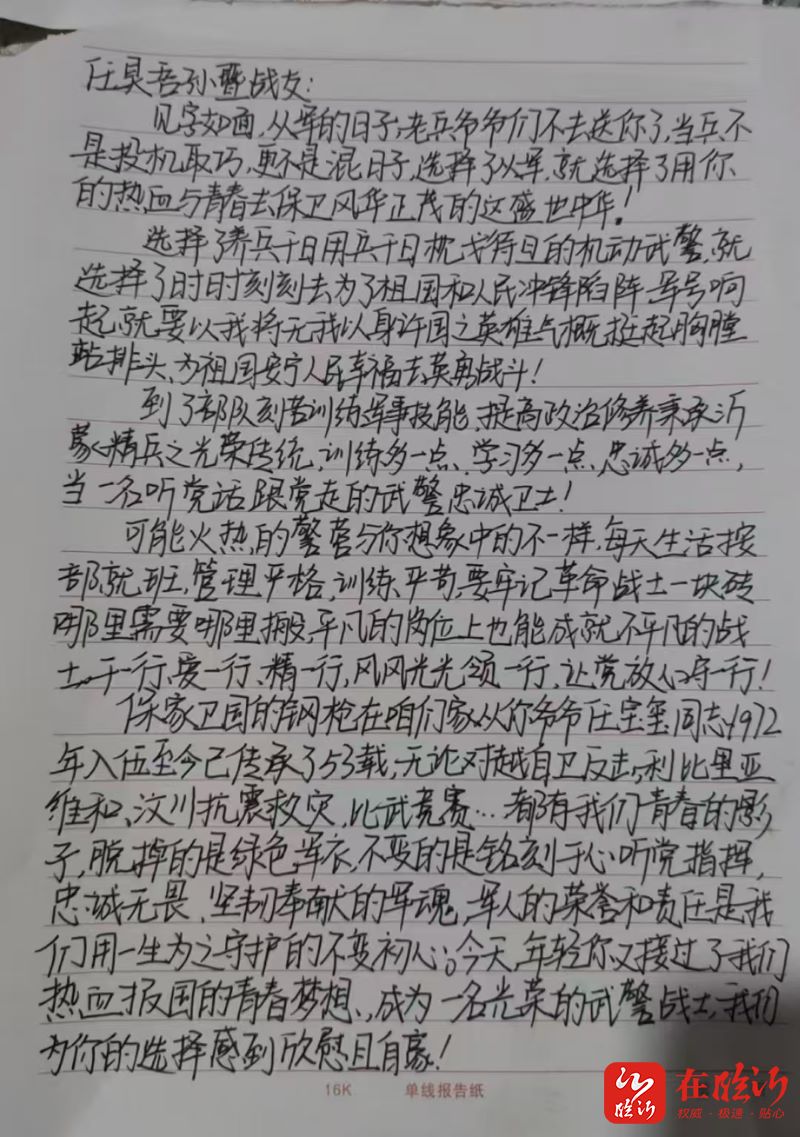 任昊吾孙暨战友：
见字如面，从军的日子，老兵爷爷们不去送你了，当兵不
是投机取巧，更不是混日子，选择了从军，就选择了用你
的热血与青春去保卫风华正茂的这盛世中华！
选择了养兵千日用兵千日枕戈待旦的机动武警，就
选择了时时刻刻去为了祖国和人民冲锋陷阵，军号响
起，就要以我将无我以身许国之英雄气概，挺起胸膛
站排头、为祖国安宁人民幸福去英勇战斗！
到了部队刻苦训练军事技能、提高政治修养秉承沂
蒙精兵之光荣传统，训练多一点、学习多一点、忠诚多一点，
当一名听党话跟党走的武警忠诚卫士！
可能火热的警营与你想象中的不一样，每天生活按
部就班，管理严格，训练严苛，要牢记革命战士一块砖
哪里需要哪里搬，平凡的岗位上也能成就不平凡的战
士，干一行、爱一行、精一行，风风光光领一行，让党放心守一行！
保家卫国的钢枪在咱们家从你爷爷任宝玺同志1972
年入伍至今已传承了53载，无论对越自卫反击，利比里亚
维和、汶川抗震救灾、比武竞赛…都有我们青春的影
子，脱掉的是绿色军衣，不变的是铭刻于心听党指挥，
忠诚无畏、坚韧奉献的军魂，军人的荣誉和责任是我
们用一生为之守护的不变初心。今天，年轻你又接过了我们
热血报国的青春梦想、成为一名光荣的武警战士，我们
为你的选择感到欣慰且自豪！
16K 单线报告纸
在临沂
临沂
权威·极速·贴心